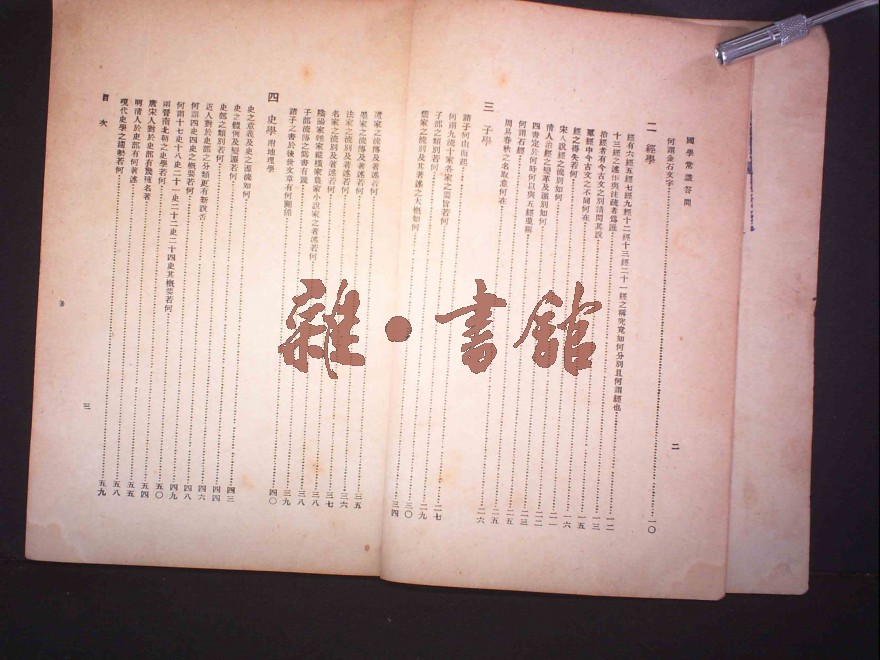 國學常識答問
何謂金石文字
二
二 經學……一〇
經有六經五經七經九經十二經十三經二十一經之稱究竟如何分別且何謂經也……一二
十三經之述作與注疏者為誰……一三
治經者有今古文之別請問其說……一五
羣經中今古文之不同何在……一六
經之得失若何
宋人說經之流別如何
清人治經之變革及派別如何……二一
四書定於何時何以與五經並稱……二二
何謂石經……二三
周易春秋之名取意何在……二五
三 子學……二六
諸子何由而起
何謂九流十家各家之要旨若何……二七
子部之類別若何……二九
儒家之流別及其著述之大概如何……三〇
道家之流傳及著述若何……三五
墨家之流傳及著述若何……三六
法家之流別及著述若何……三七
名家之流別及著述若何
陰陽家雜家縱橫家農家小說家之著述若何……三八
子部流傳之偽書有幾……三八
諸子之書於後世文章有何關係……三九
四 史學 附地理學……四〇
史之意義及史之源流如何……四三
史之體例及變遷若何……四四
史部之類別若何……四六
近人對於史部之分類更有新說否……四八
何謂四史四史之概要若何……四九
何謂十七史十八史二十一史二十二史二十四史其概要若何……五〇
兩晉南北朝之史學若何……五四
唐宋人對於史部有幾種名著……五五
明清人於史部有何著述……五八
現代史學之趨勢若何……五九
目次
三
雜·書館